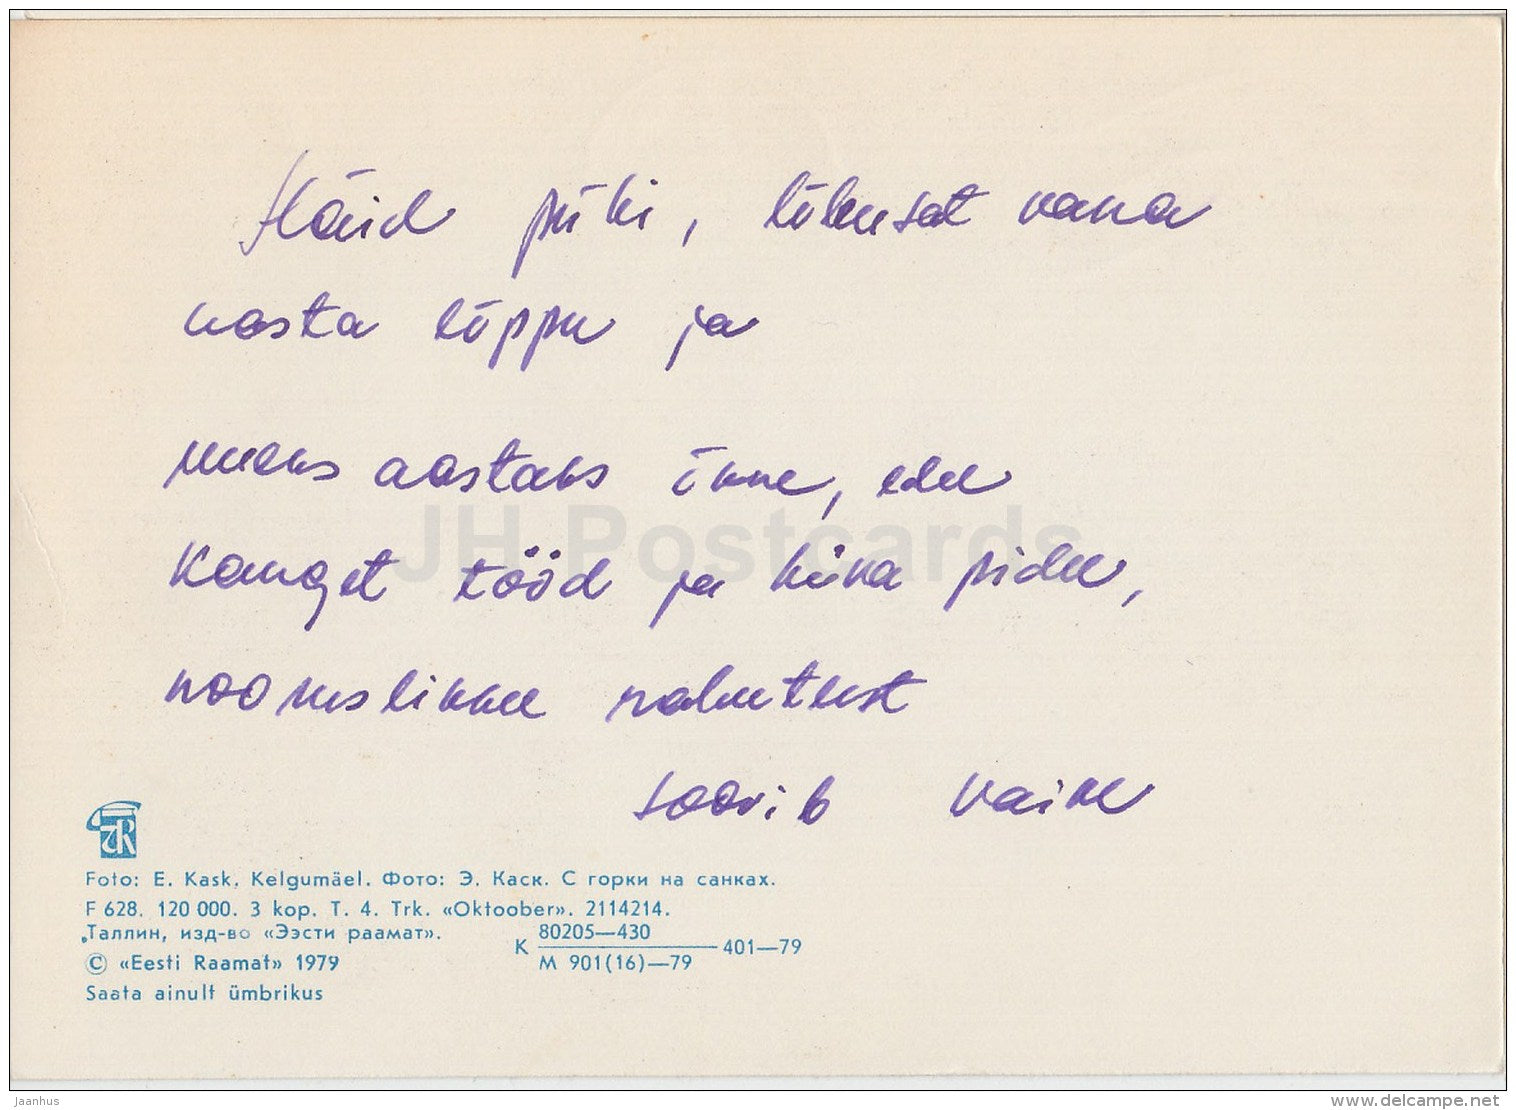 Häid pühi, lõbusat vana
aasta lõppu ja
uueks aastaks õnne, edu
kanget tööd ja kõva pidu,
nooruslikku
soovib Vaike
JH Postcards
Foto: E. Kask. Kelgumäel. Фото: Э. Каск. С горки на санках.
F 628. 120 000. 3 kop. T. 4. Trk. «Oktoober». 2114214.
Таллин, изд-во «Ээсти раамат».
К 80205—430 401—79
М 901(16)—79
© «Eesti Raamat» 1979
Saata ainult ümbrikus
Jaanhus
www.delcampe.net